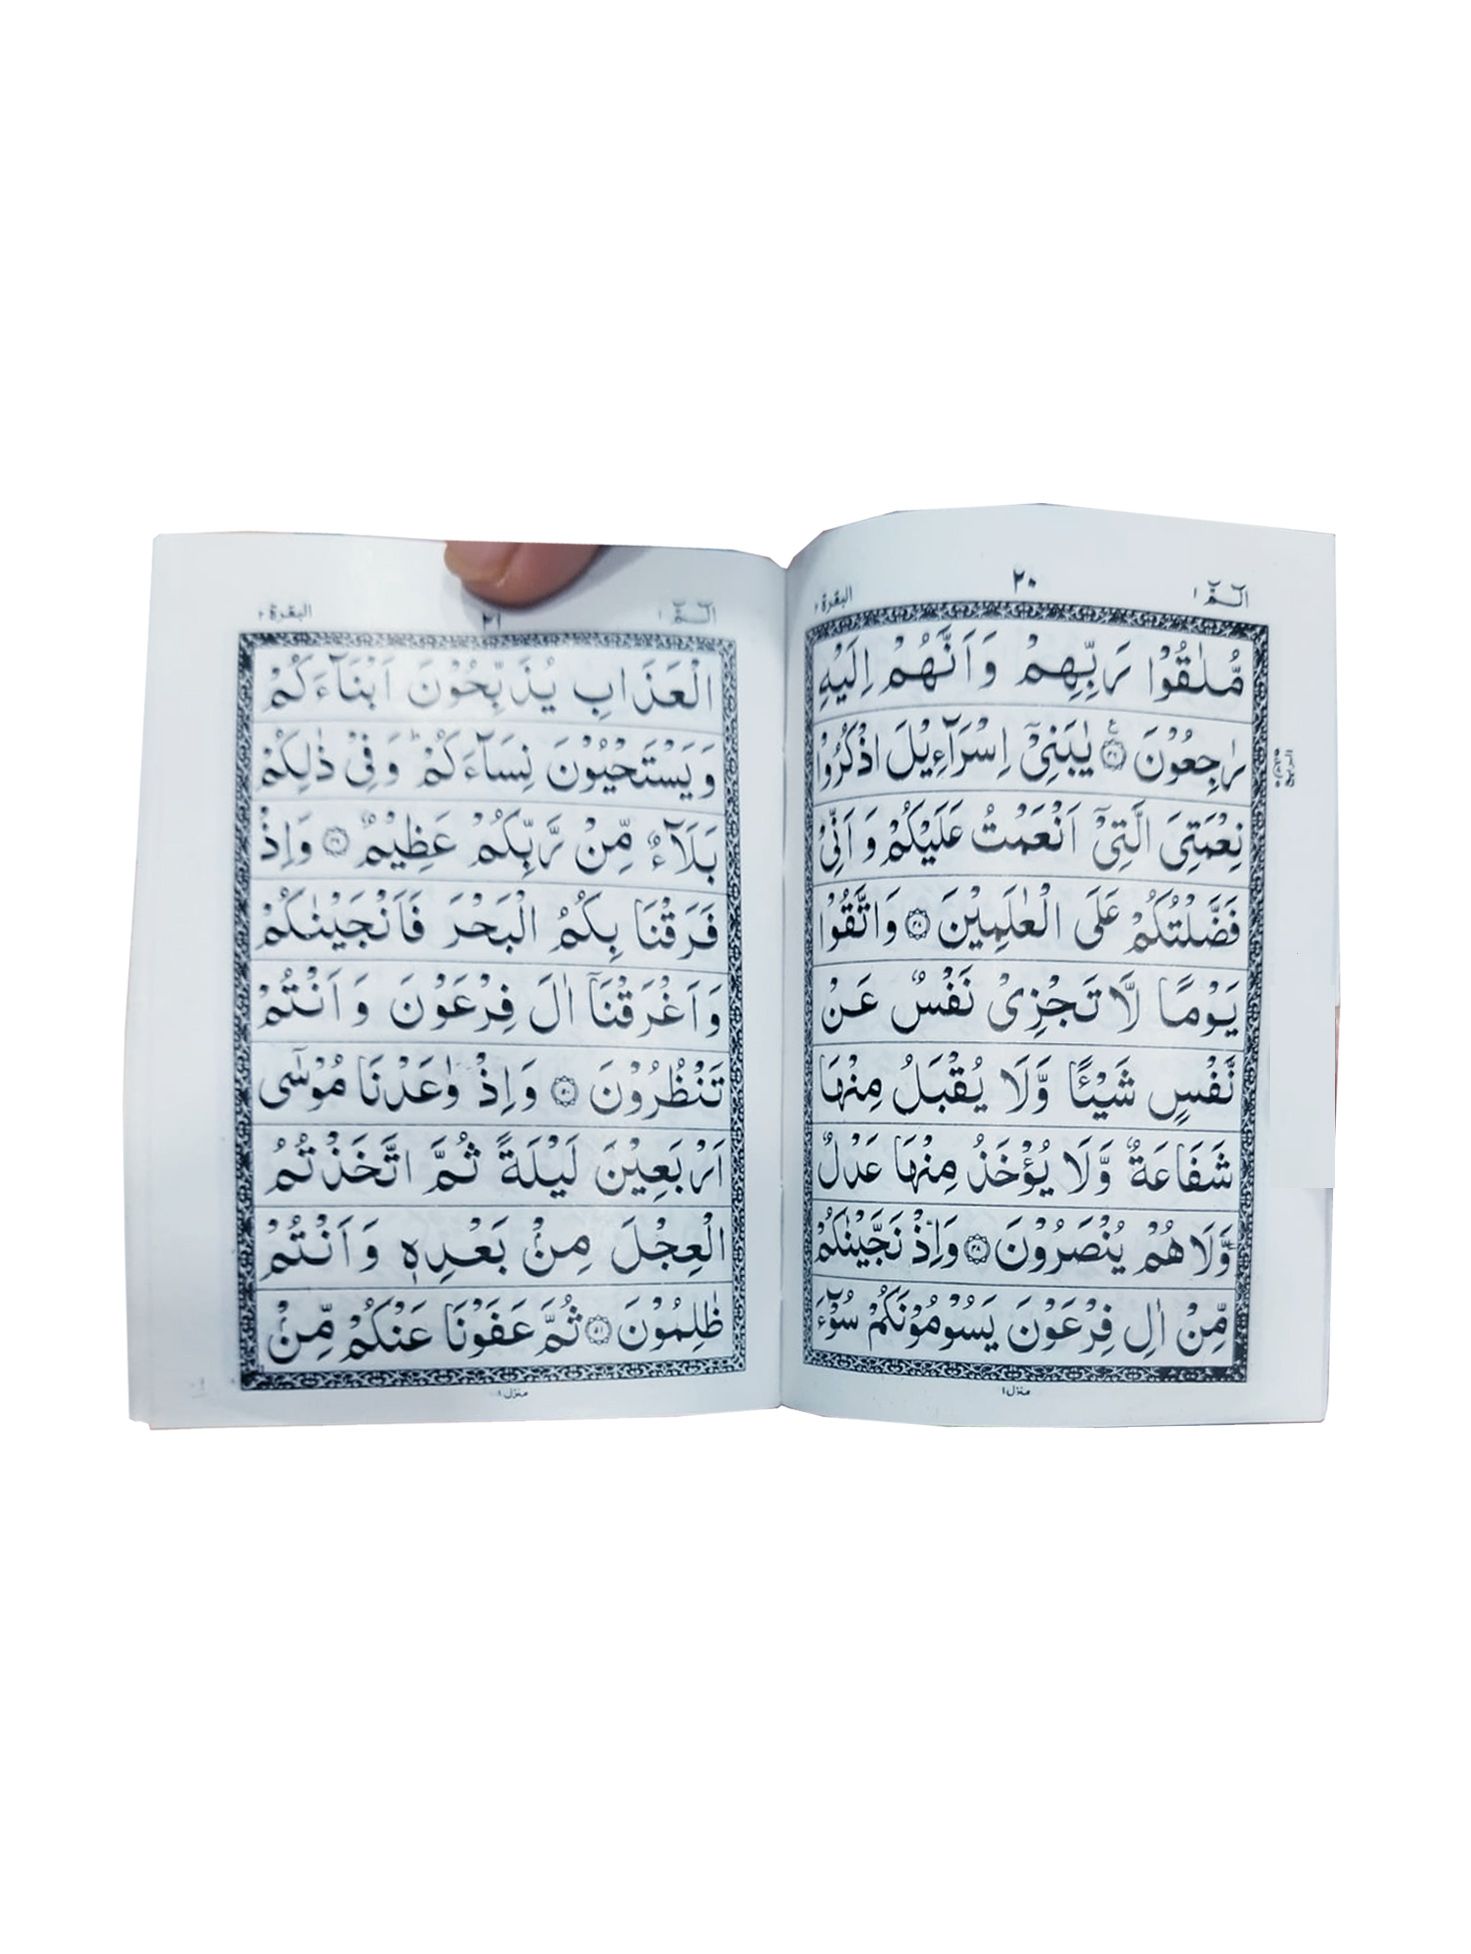 الٓمّٓ ١
٢٠
البقرة ٢
مُّلٰقُوْا رَبِّهِمْ وَاَنَّهُمْ اِلَيْهِ
رٰجِعُوْنَ ﴿٤٦﴾ ع يٰبَنِىْٓ اِسْرَآءِيْلَ اذْكُرُوْا
نِعْمَتِىَ الَّتِىْٓ اَنْعَمْتُ عَلَيْكُمْ وَاَنِّىْ
فَضَّلْتُكُمْ عَلَى الْعٰلَمِيْنَ ﴿٤٧﴾ وَاتَّقُوْا
يَوْمًا لَّا تَجْزِىْ نَفْسٌ عَنْ
نَّفْسٍ شَيْـًٔا وَّلَا يُقْبَلُ مِنْهَا
شَفَاعَةٌ وَّلَا يُؤْخَذُ مِنْهَا عَدْلٌ
وَّلَا هُمْ يُنْصَرُوْنَ ﴿٤٨﴾ وَاِذْ نَجَّيْنٰكُمْ
مِّنْ اٰلِ فِرْعَوْنَ يَسُوْمُوْنَكُمْ سُوْٓءَ
منزل ١
الٓمّٓ ١
٢١
البقرة ٢
الْعَذَابِ يُذَبِّحُوْنَ اَبْنَآءَكُمْ
وَيَسْتَحْيُوْنَ نِسَآءَكُمْ ؕ وَفِىْ ذٰلِكُمْ
بَلَآءٌ مِّنْ رَّبِّكُمْ عَظِيْمٌ ﴿٤٩﴾ وَاِذْ
فَرَقْنَا بِكُمُ الْبَحْرَ فَاَنْجَيْنٰكُمْ
وَاَغْرَقْنَآ اٰلَ فِرْعَوْنَ وَاَنْتُمْ
تَنْظُرُوْنَ ﴿٥٠﴾ وَاِذْ وٰعَدْنَا مُوْسٰٓى
اَرْبَعِيْنَ لَيْلَةً ثُمَّ اتَّخَذْتُمُ
الْعِجْلَ مِنْۢ بَعْدِهٖ وَاَنْتُمْ
ظٰلِمُوْنَ ﴿٥١﴾ ثُمَّ عَفَوْنَا عَنْكُمْ مِّنْۢ
منزل ١